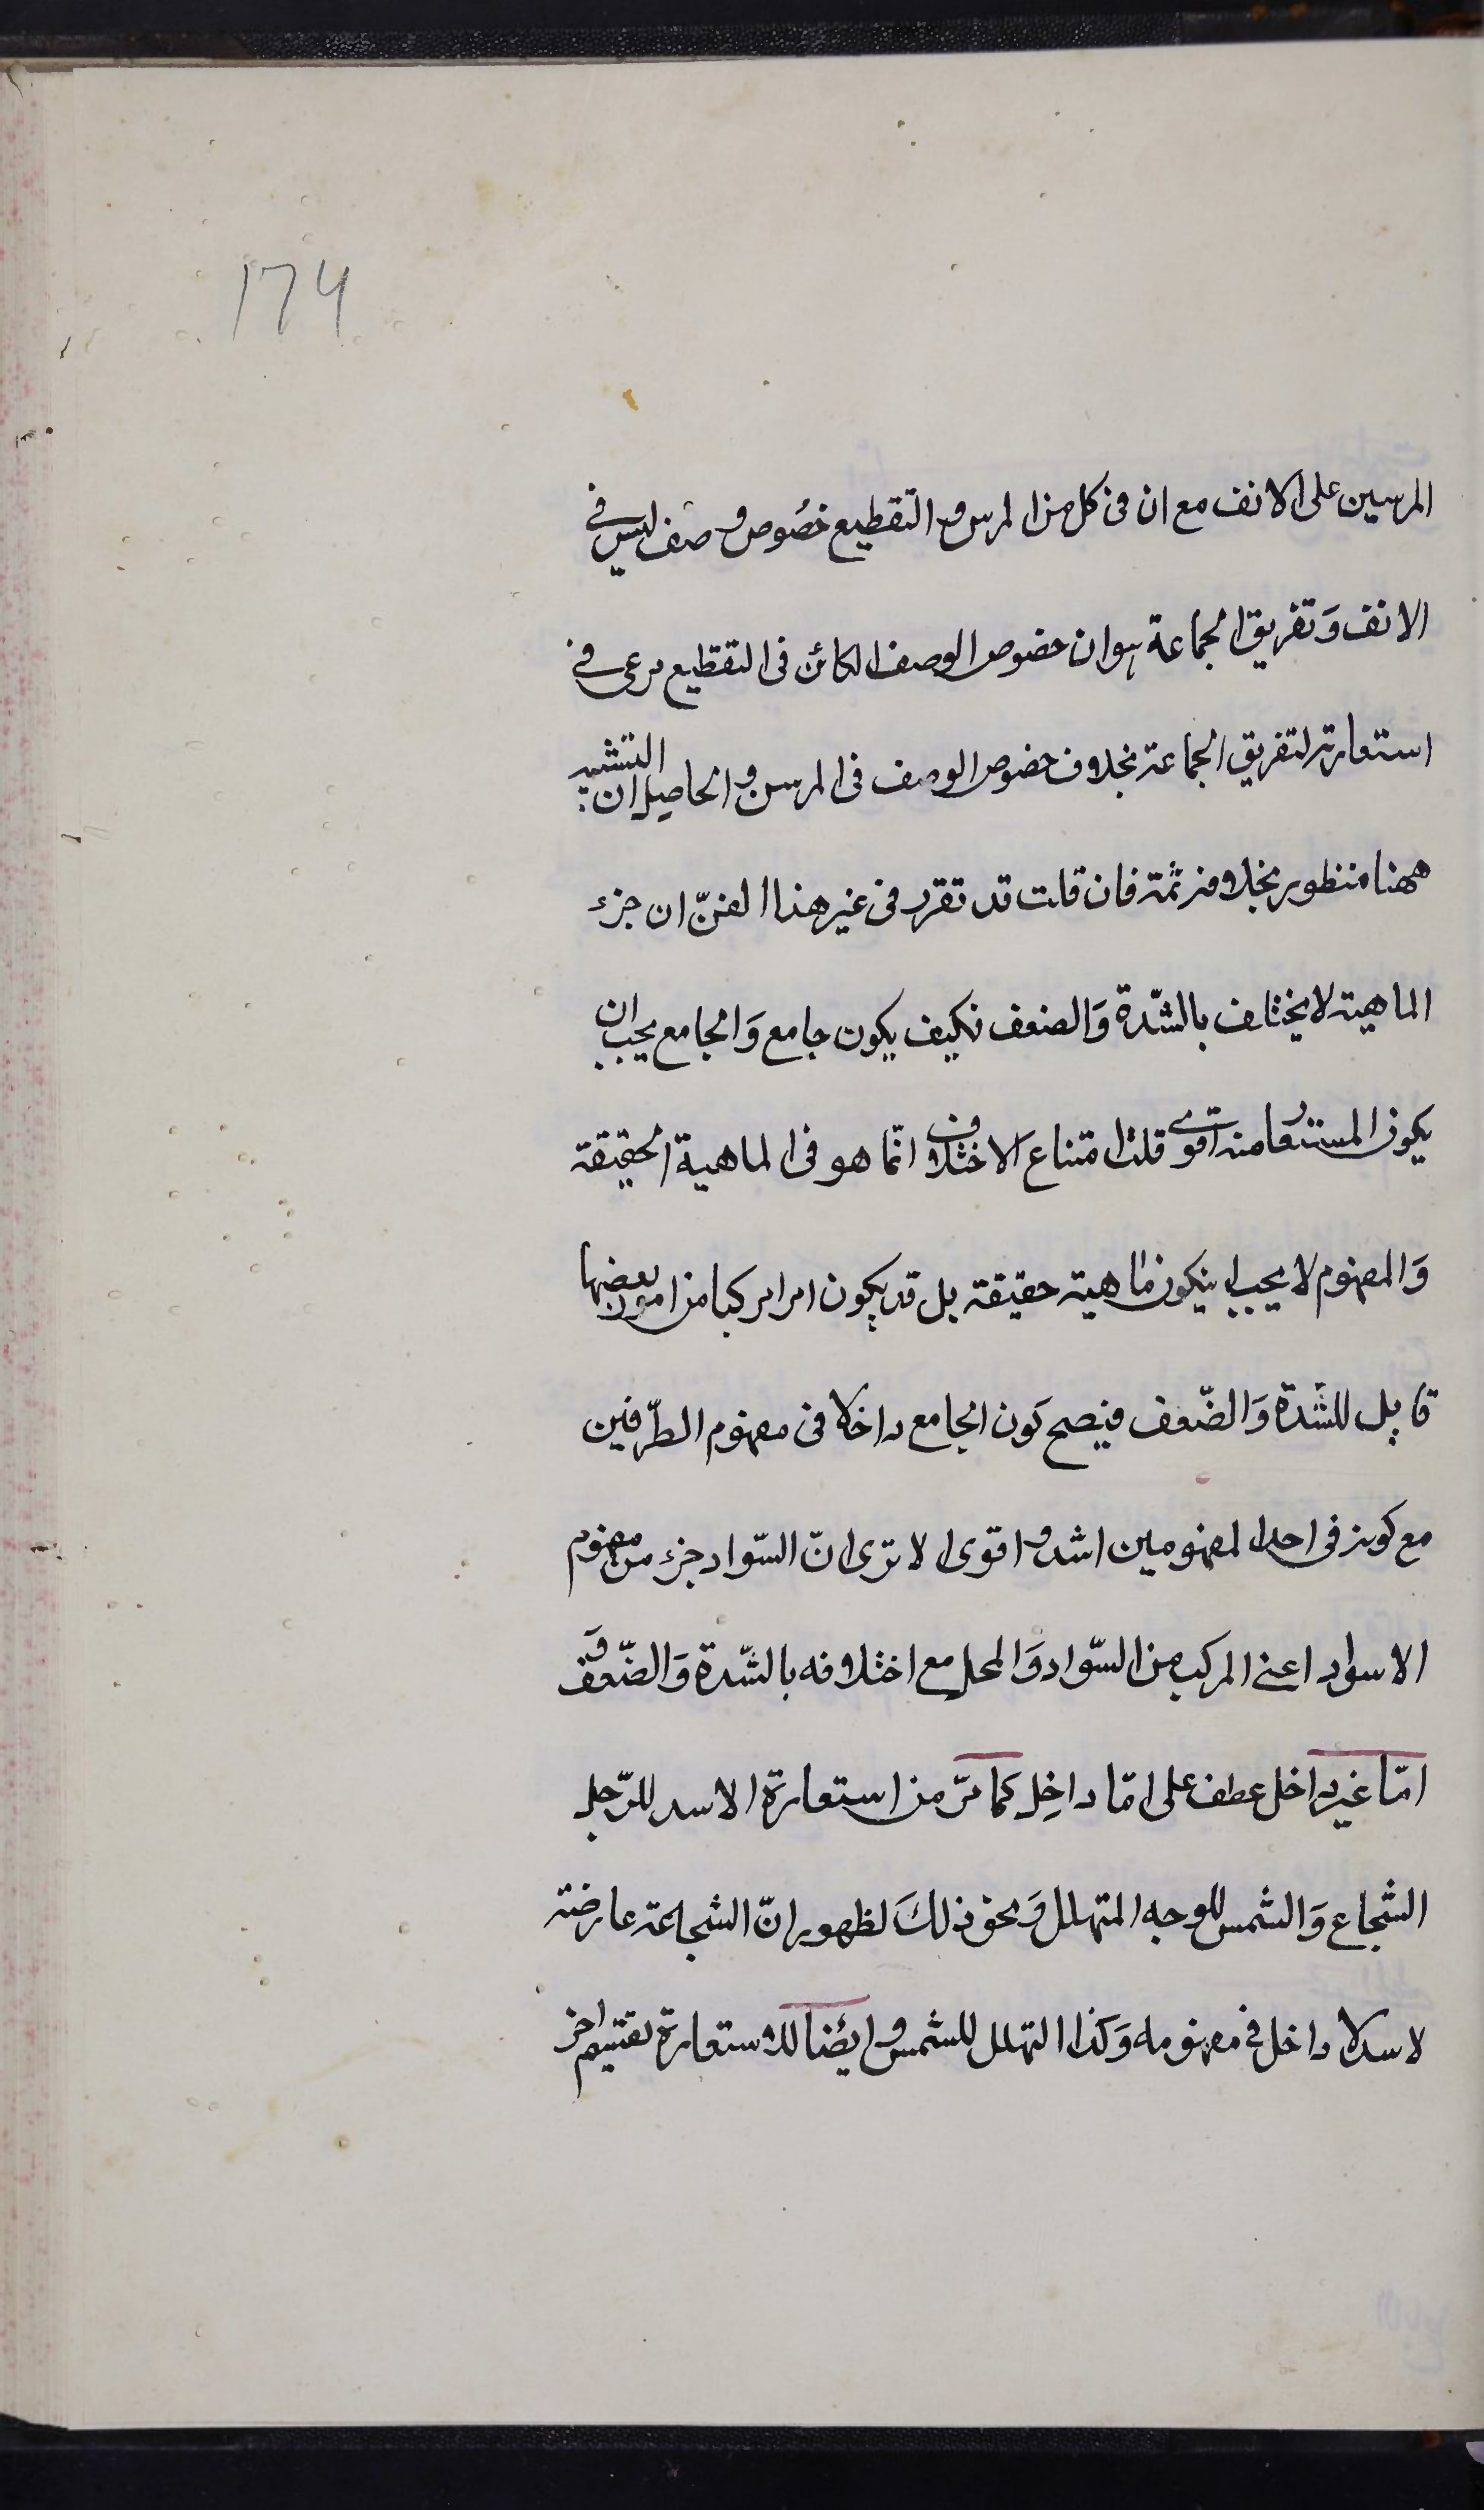 174
المرسين على الانف مع ان فى كل من المرسن و التقطيع خصُوص وصف ليس فى
الانف وَتفريق الجماعة هو ان خصوص الوصف الكائن فى التقطيع مرعى فى
استعارته لتفريق الجماعة بخلاف خصوص الوصف فى المرسن والحاصل ان التشبيه
ههنا منظور بخلافه ثمة فان قلت قد تقرر فى غير هذا الفنّ ان جزء
الماهية لا يختلف بالشّدة وَالضعف فكيف يكون جامع وَالجامع يجب ان
يكون المستعار منه اقوى قلت امتناع الاختلاف انّما هو فى الماهية الحقيقة
وَالمفهوم لا يجب ان يكون ماهية حقيقة بل قد يكون امرا مركبا من امور بعضها
قابل للشّدة وَالضّعف فيصح كون الجامع داخلا فى مفهوم الطّرفين
مع كونه فى احد المفهومين اشد و اقوى الا ترى انّ السّواد جزء من مفهوم
الاسواد اعنى المركب من السّواد وَالمحل مع اختلافه بالشّدة وَالضّعف وَ
امّا غير داخل عطف على امّا داخِل كَما مرّ من استعارة الاسد للرّجل
الشّجاع وَالشمس للوجه المتهلل وَنحو ذلكَ لظهور انّ الشجاعة عارضة
لاسد لا داخل فى مفهومه وَكذا التهلل للشمس وايضا للاستعارة تقسيم اخر